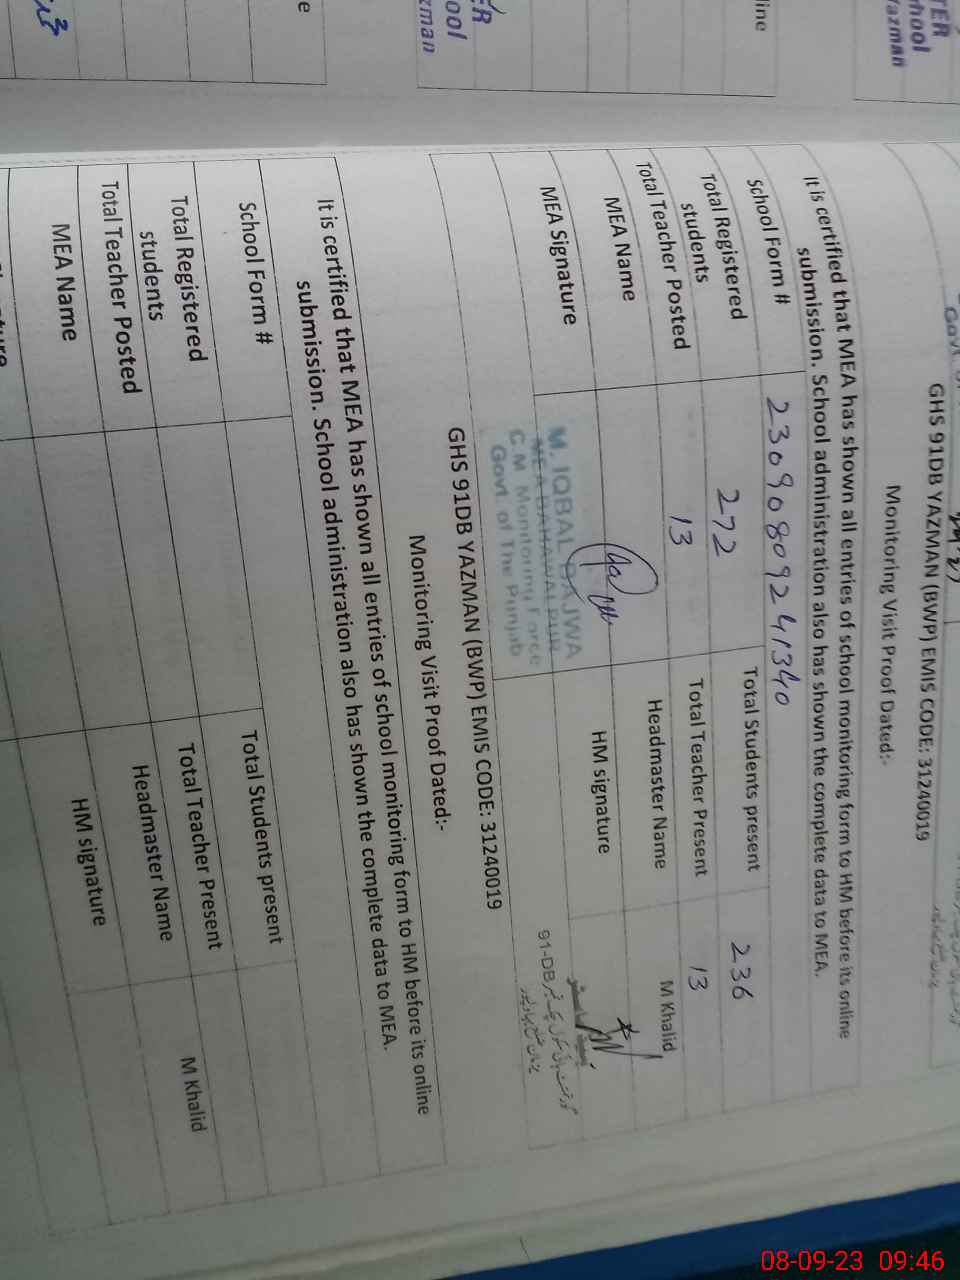 TER
hool
Yazman
line
ool
zman
GHS 91DB YAZMAN (BWP) EMIS CODE: 31240019
Monitoring Visit Proof Dated:-
It is certified that MEA has shown all entries of school monitoring form to HM before its online
submission. School administration also has shown the complete data to MEA.
School Form # 23090809241340
Total Registered students 272 Total Students present 236
Total Teacher Posted 13 Total Teacher Present 13
MEA Name Headmaster Name M Khalid
MEA Signature HM signature
M. IQBAL BAJWA
MEA BAHAWALPUR
C.M. Monitoring Force
Govt. of The Punjab
91-DB
GHS 91DB YAZMAN (BWP) EMIS CODE: 31240019
Monitoring Visit Proof Dated:-
It is certified that MEA has shown all entries of school monitoring form to HM before its online
submission. School administration also has shown the complete data to MEA.
School Form #
Total Students present
Total Registered students
Total Teacher Present
Total Teacher Posted
Headmaster Name M Khalid
MEA Name
HM signature
08-09-23 09:46